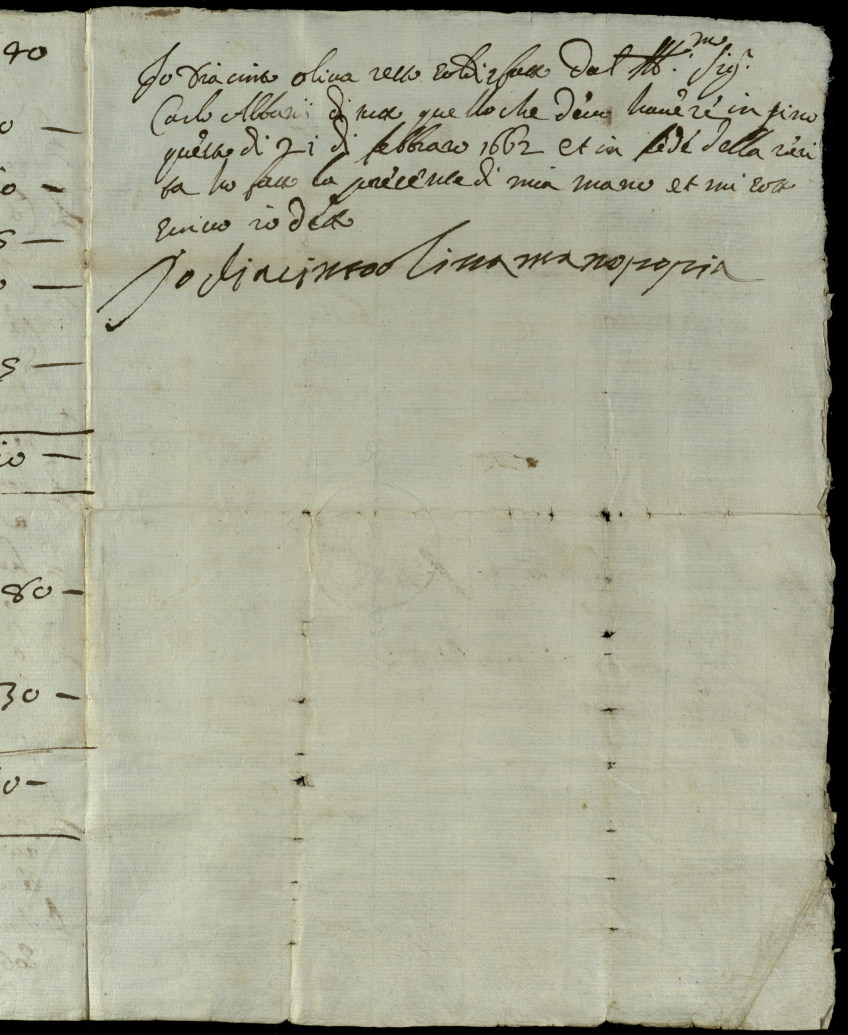 40
Jo Diacinto oliva resto sodisfatto dal Ill.mo Sig.r
Carlo Albani di tutto quello che devo havere in sino
questo di 21 di febbraro 1662 et in fede della veri
ta ho fatto la presente di mia mano et mi sotto
scrivo io detto
Jo diacinto oliva mano propia
80 —
30 —